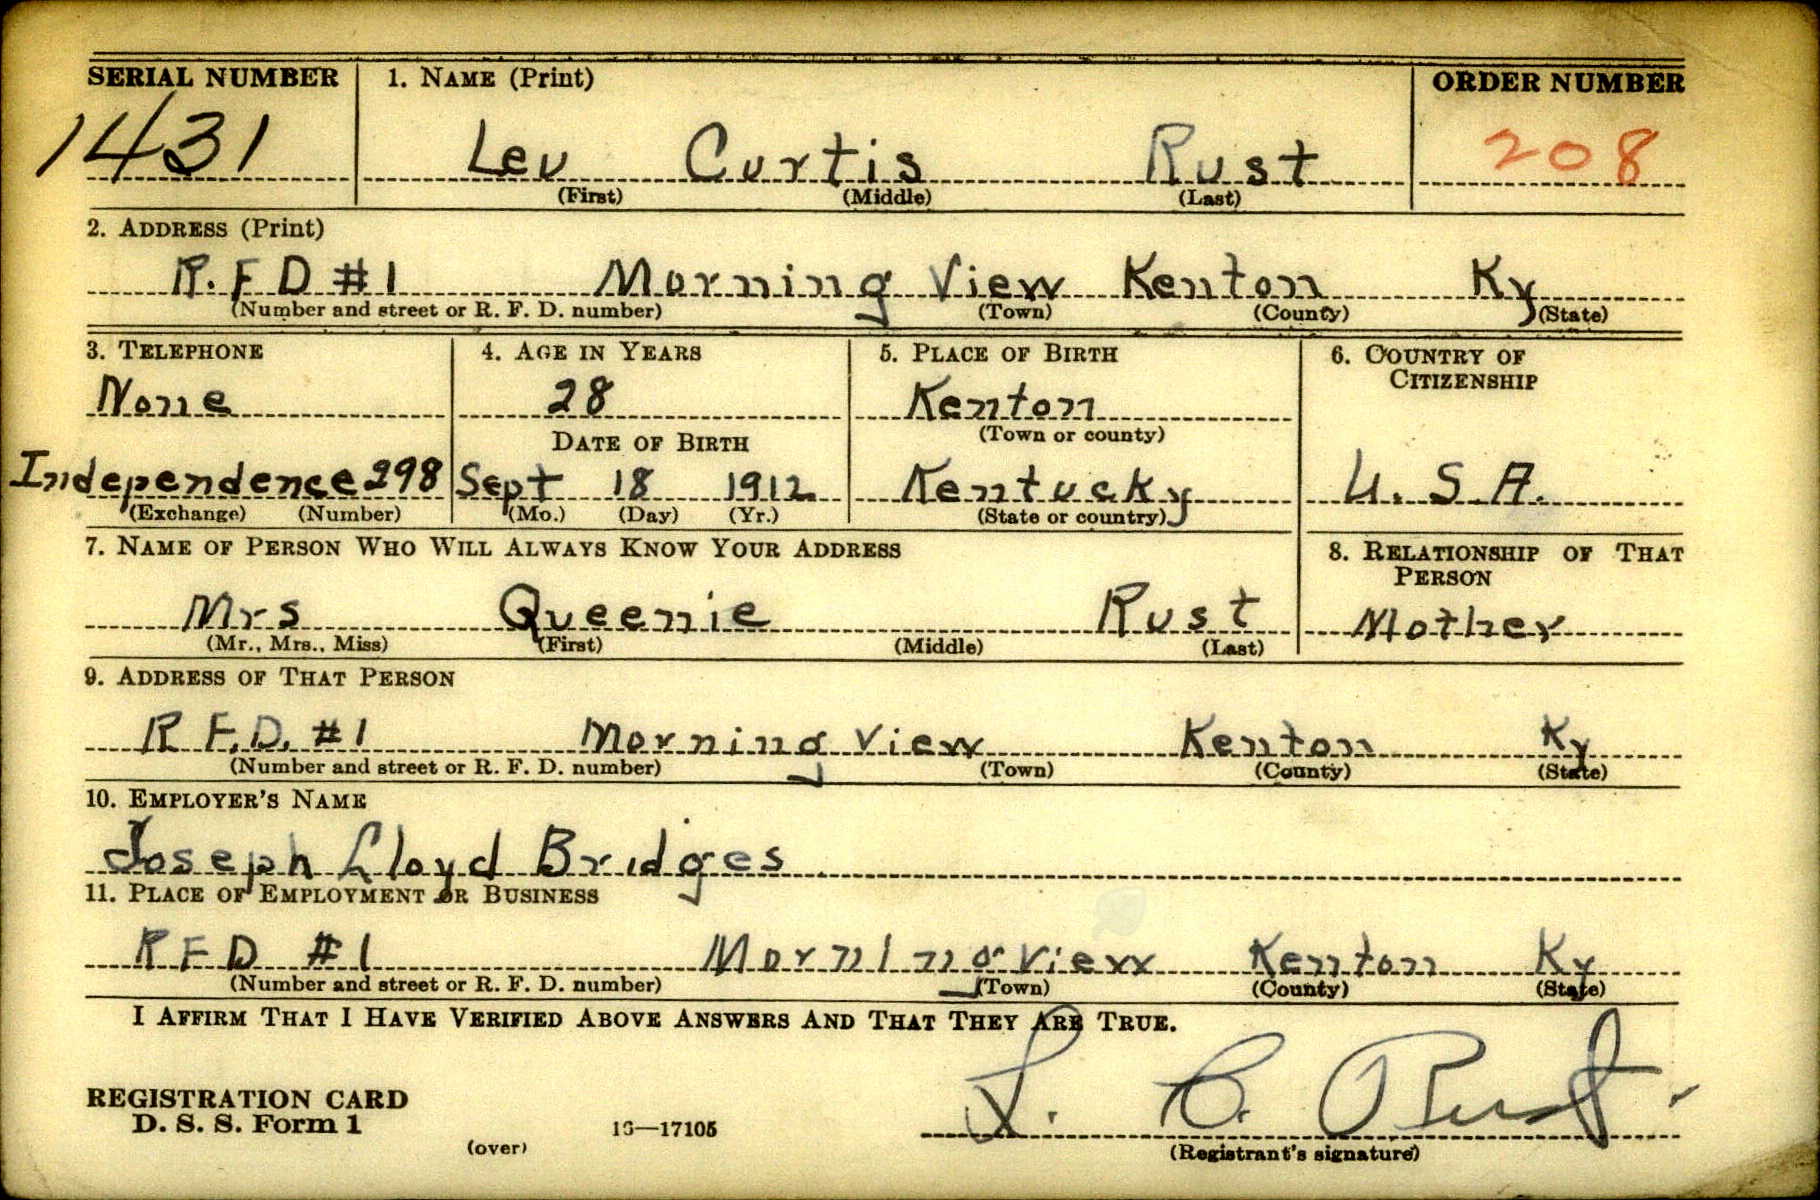 SERIAL NUMBER 1. NAME (Print) ORDER NUMBER
1431 Leu Curtis Rust 208
(First) (Middle) (Last)
2. ADDRESS (Print)
R.F.D #1 Morning View Kenton Ky
(Number and street or R. F. D. number) (Town) (County) (State)
3. TELEPHONE 4. AGE IN YEARS 5. PLACE OF BIRTH 6. COUNTRY OF CITIZENSHIP
None 28 Kenton
DATE OF BIRTH (Town or county)
Independence 298 Sept 18 1912 Kentucky U.S.A.
(Exchange) (Number) (Mo.) (Day) (Yr.) (State or country)
7. NAME OF PERSON WHO WILL ALWAYS KNOW YOUR ADDRESS 8. RELATIONSHIP OF THAT PERSON
Mrs Queenie Rust Mother
(Mr., Mrs., Miss) (First) (Middle) (Last)
9. ADDRESS OF THAT PERSON
R F.D. #1 Morning View Kenton Ky
(Number and street or R. F. D. number) (Town) (County) (State)
10. EMPLOYER'S NAME
Joseph Lloyd Bridges
11. PLACE OF EMPLOYMENT OR BUSINESS
R F D #1 Morning View Kenton Ky
(Number and street or R. F. D. number) (Town) (County) (State)
I AFFIRM THAT I HAVE VERIFIED ABOVE ANSWERS AND THAT THEY ARE TRUE.
REGISTRATION CARD
D. S. S. Form 1 16—17105 L. C. Rust
(over) (Registrant's signature)